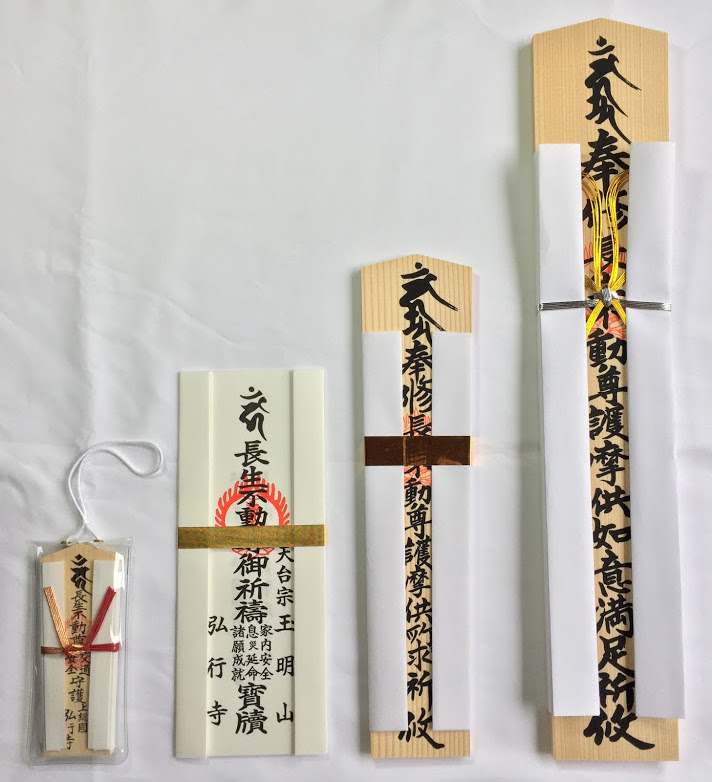 長生不動尊
交通
安全
守護
上總國
弘行寺
天台宗玉明山
長生不動尊御祈禱
家内安全
息災延命
諸願成就
寶牘
弘行寺
奉修長不動尊護摩供所求祈攸
奉修長不動尊護摩供如意満足祈攸